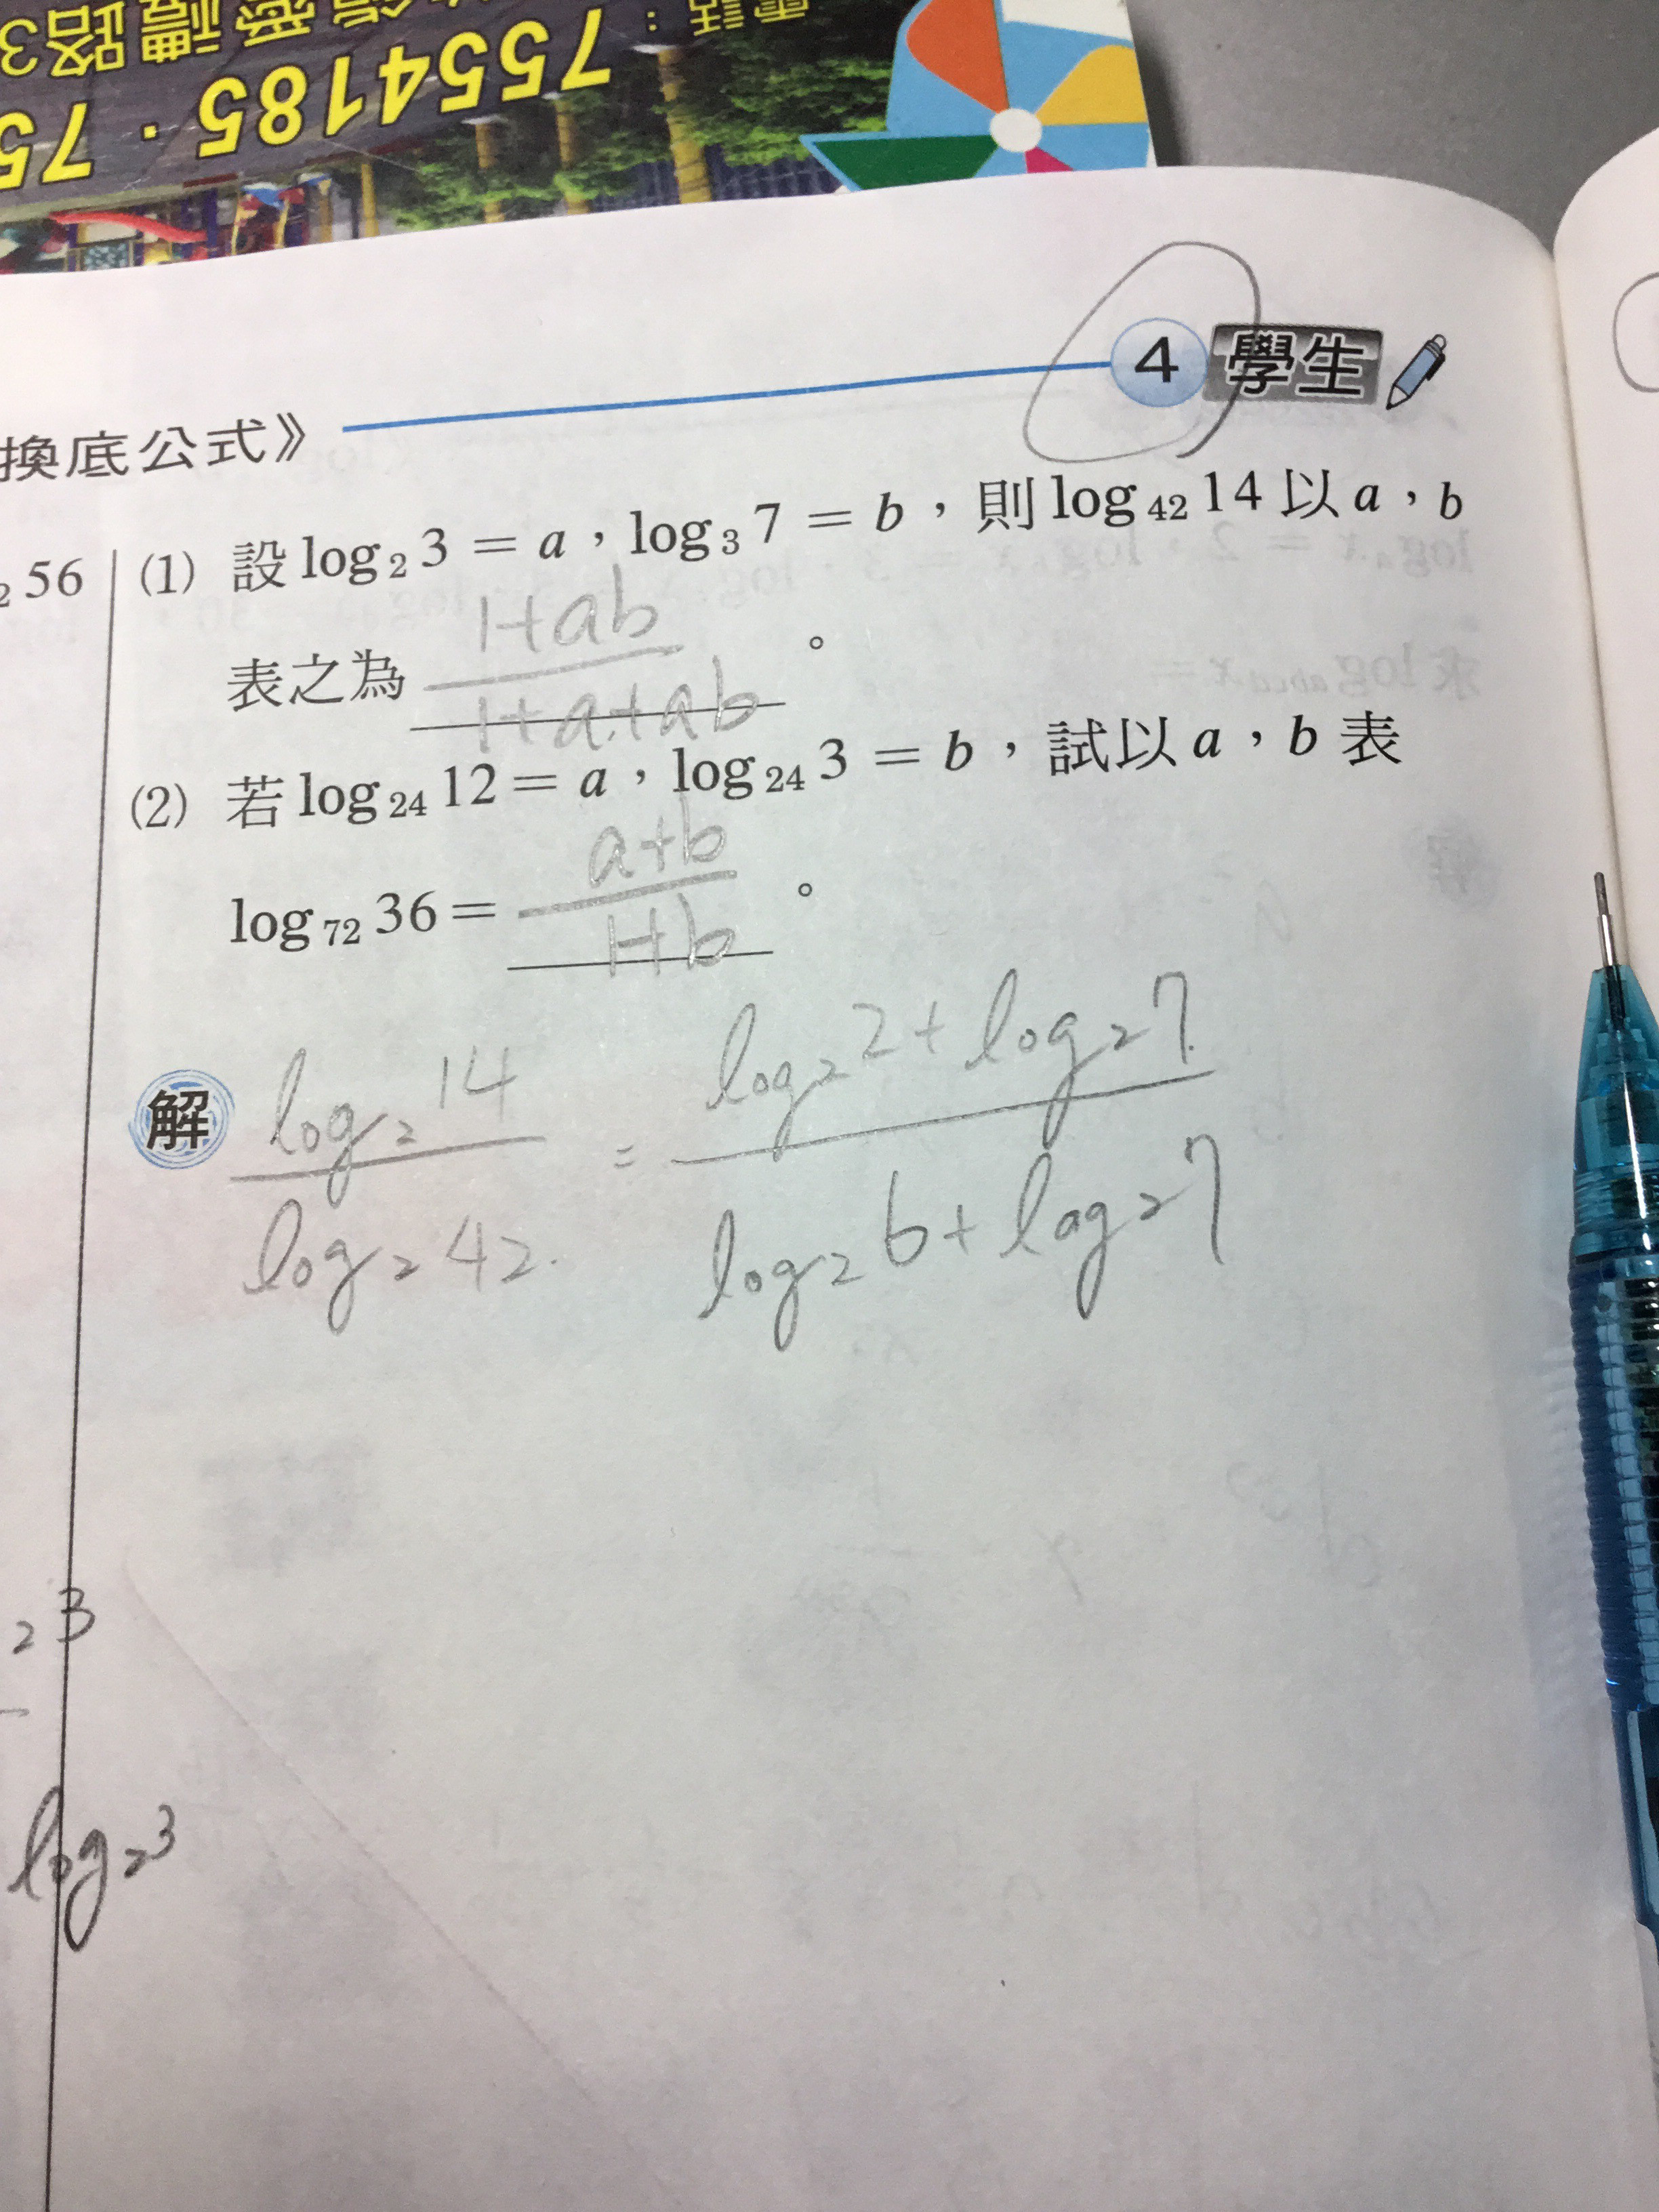 7554185．75
4 學生
換底公式》
(1) 設 log₂ 3 = a，log₃ 7 = b，則 log₄₂ 14 以 a，b
₂ 56
表之為 (1+ab)/(1+a+ab)。
(2) 若 log₂₄ 12 = a，log₂₄ 3 = b，試以 a，b 表
log₇₂ 36 = (a+b)/(1+b)。
解
log₂14 / log₂42. = (log₂2 + log₂7.) / (log₂6 + log₂7)
₂3
log₂3